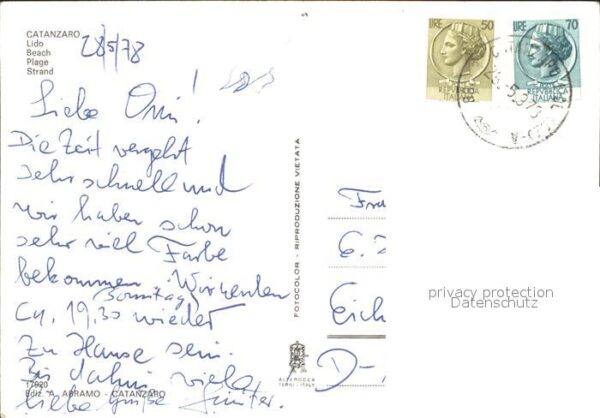 CATANZARO
Lido
Beach
Plage
Strand
28/5/78
Liebe Omi!
Die Zeit vergeht
sehr schnell und
wir haben schon
sehr viel Farbe
bekommen. Wir werden
Sonntag
ca. 19,30 wieder
zu Hause sein.
Bis dahin viele
liebe Grüße Günter.
17920
Ediz. A. ABRAMO - CATANZARO
FOTOCOLOR - RIPRODUZIONE VIETATA
ALTEROCCA
TERNI - ITALY
LIRE 50
REPUBBLICA
ITALIANA
LIRE 70
REPUBBLICA
ITALIANA
Fra
6.
Eich
D-
privacy protection
Datenschutz